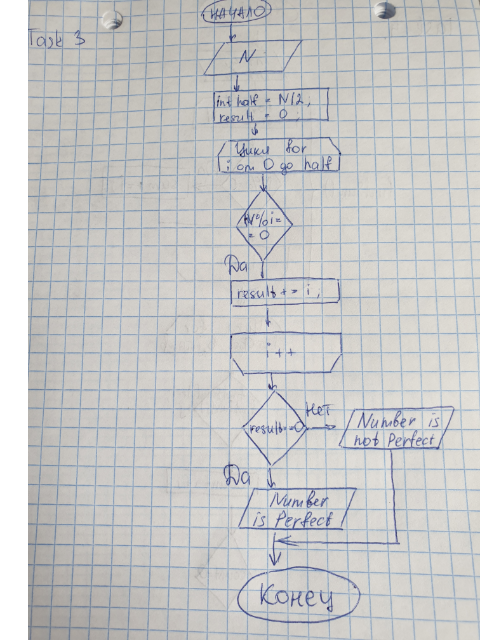 НАЧАЛО
Task 3
N
int half = N/2,
result = 0;
Цикл for
i от 0 до half
N%i=
= 0
Да
result += i,
i++
result=0
Нет
Number is
not Perfect
Да
Number
is Perfect
Конец